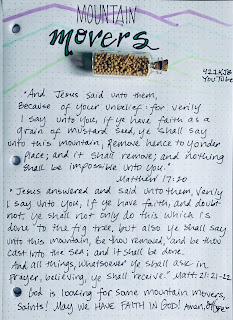 MOUNTAIN
movers
421KJB
YouTube
"And Jesus said unto them,
Because of your unbelief: for verily
I say unto you, if ye have faith as a
grain of mustard seed, ye shall say
unto this mountain, Remove hence to yonder
place; and it shall remove; and nothing
shall be impossible unto you."
Matthew 17:20
• Jesus answered and said unto them, Verily
I say unto you, If ye have faith, and doubt
not, ye shall not only do this which is
done to the fig tree, but also ye shall say
unto this mountain, be thou removed, and be thou
cast into the sea; and it shall be done.
And all things, whatsoever ye shall ask in
prayer, believing, ye shall receive." Matt: 21:21-22
God is looking for some mountain movers,
Saints! May WE HAVE FAITH IN GOD! Amen.